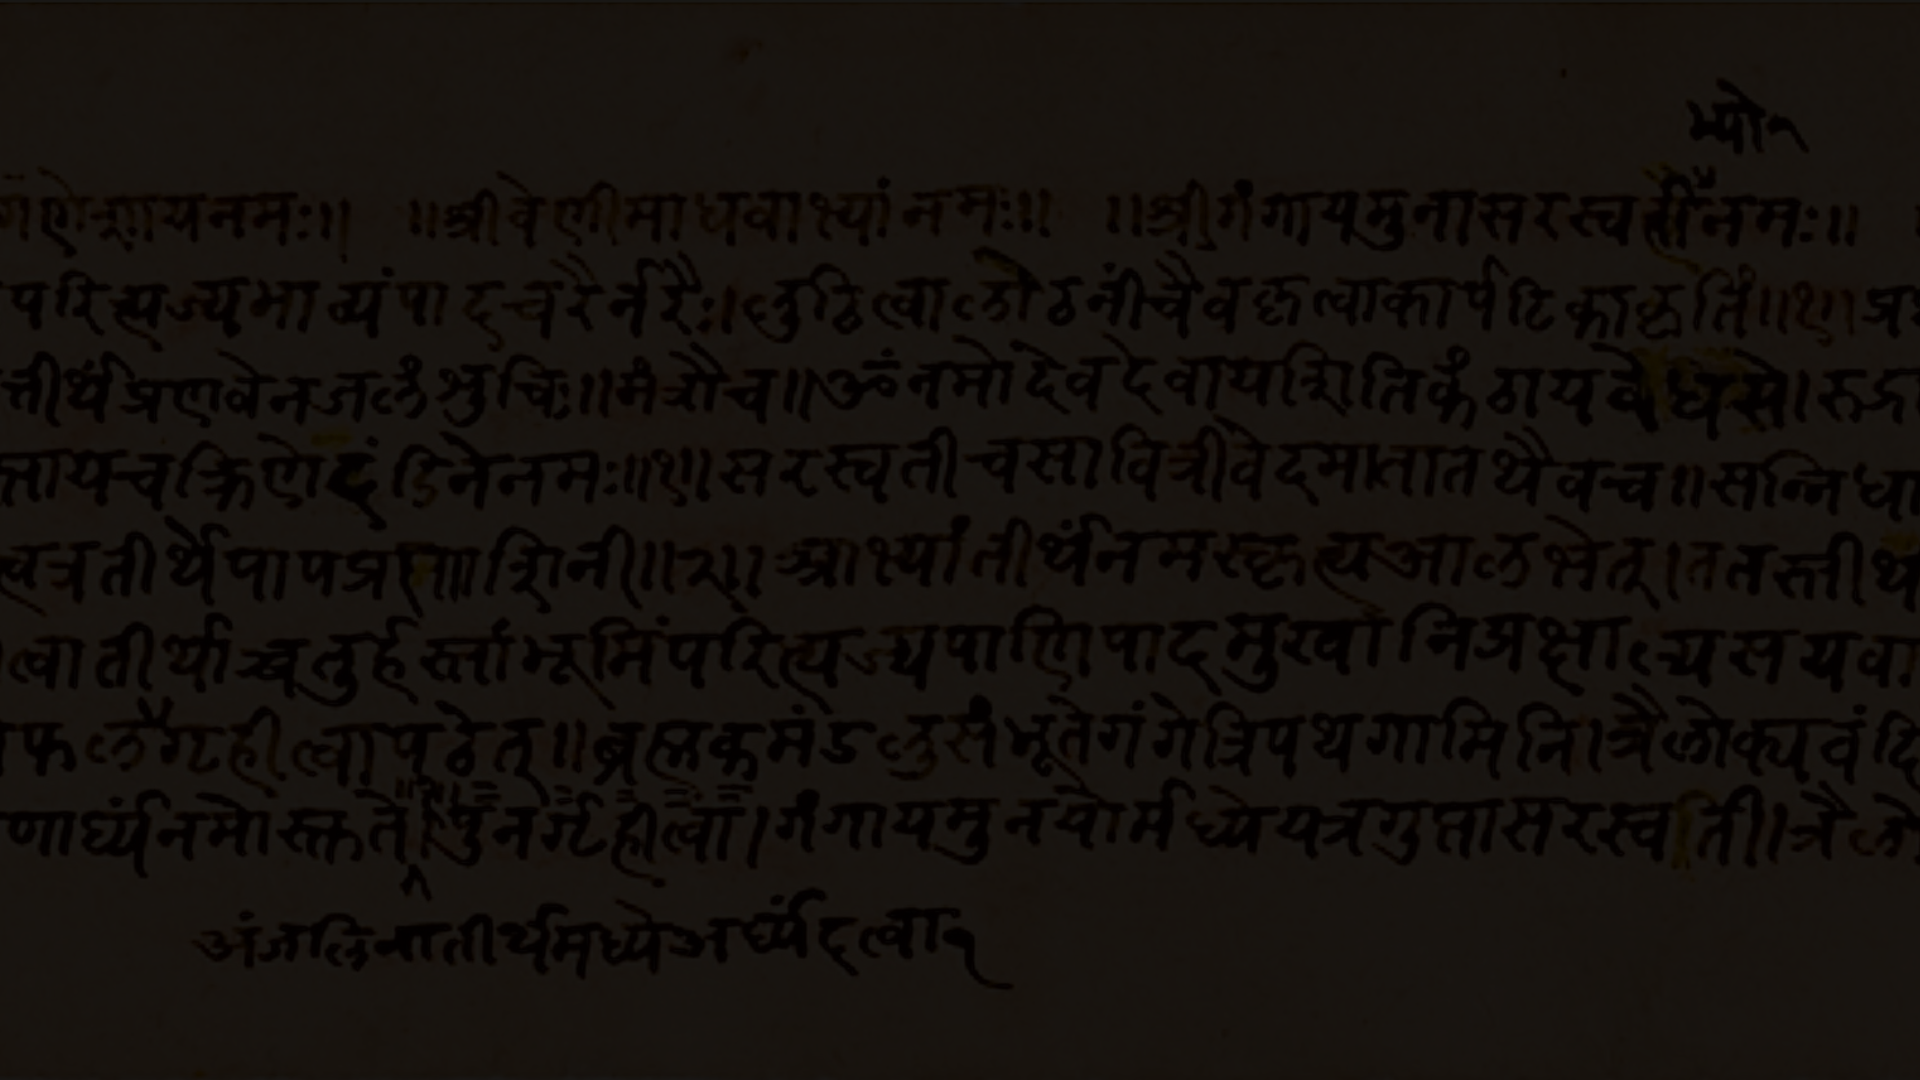 भ्यो
गणेशायनमः॥ ॥श्रीवेणीमाधवाभ्यांनमः॥ ॥श्रीगंगायमुनासरस्वतीनमः॥
परित्यज्यभाव्यंपादचरैर्नरैः।लुठित्वालोठनींचैवकृत्वाकार्पटिकाकृतिं॥१॥
त्तीर्थंप्रणवेनजलंशुचिः॥मंत्रौच॥ॐनमोदेवदेवायशितिकंठायवेधसे।रुद्र
क्रिणेदंडिनेनमः॥१॥सरस्वतीचसावित्रीवेदमातातथैवच॥सन्निधा
त्रतीर्थेपापप्रणाशिनी॥२॥आभ्यांतीर्थंनमस्कृत्यआलभेत्।ततस्तीर्थ
त्वातीर्थाच्चतुर्हस्तांभूमिंपरित्यज्यपाणिपादमुखानिप्रक्षाल्यसयवा
फलंगृहीत्वापठेत्॥ब्रह्मकमंडलुसंभूतेगंगेत्रिपथगामिनि।त्रैलोक्यवंदि
णार्घ्यंनमोस्तुते॥पुनर्गृहीत्वा।गंगायमुनयोर्मध्येयत्रगुप्तासरस्वती।त्रैलो
अंजलिनातीर्थमध्येअर्घ्यंदत्वा